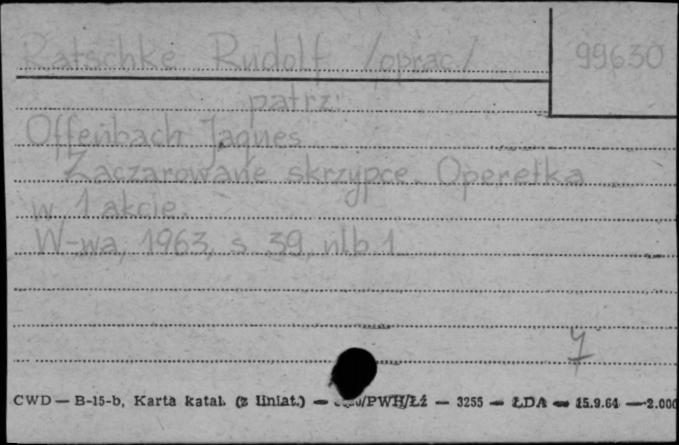 Ratschke Rudolf /oprac/ 99630
patrz:
Offenbach Jaques
Zaczarowane skrzypce. Operetka
w 1 akcie.
W-wa, 1963, s. 39, nlb 1
CWD — B-15-b, Karta katal. (z liniat.) — /PWH/Łź — 3255 — ŁDA — 15.9.61 — 2.000